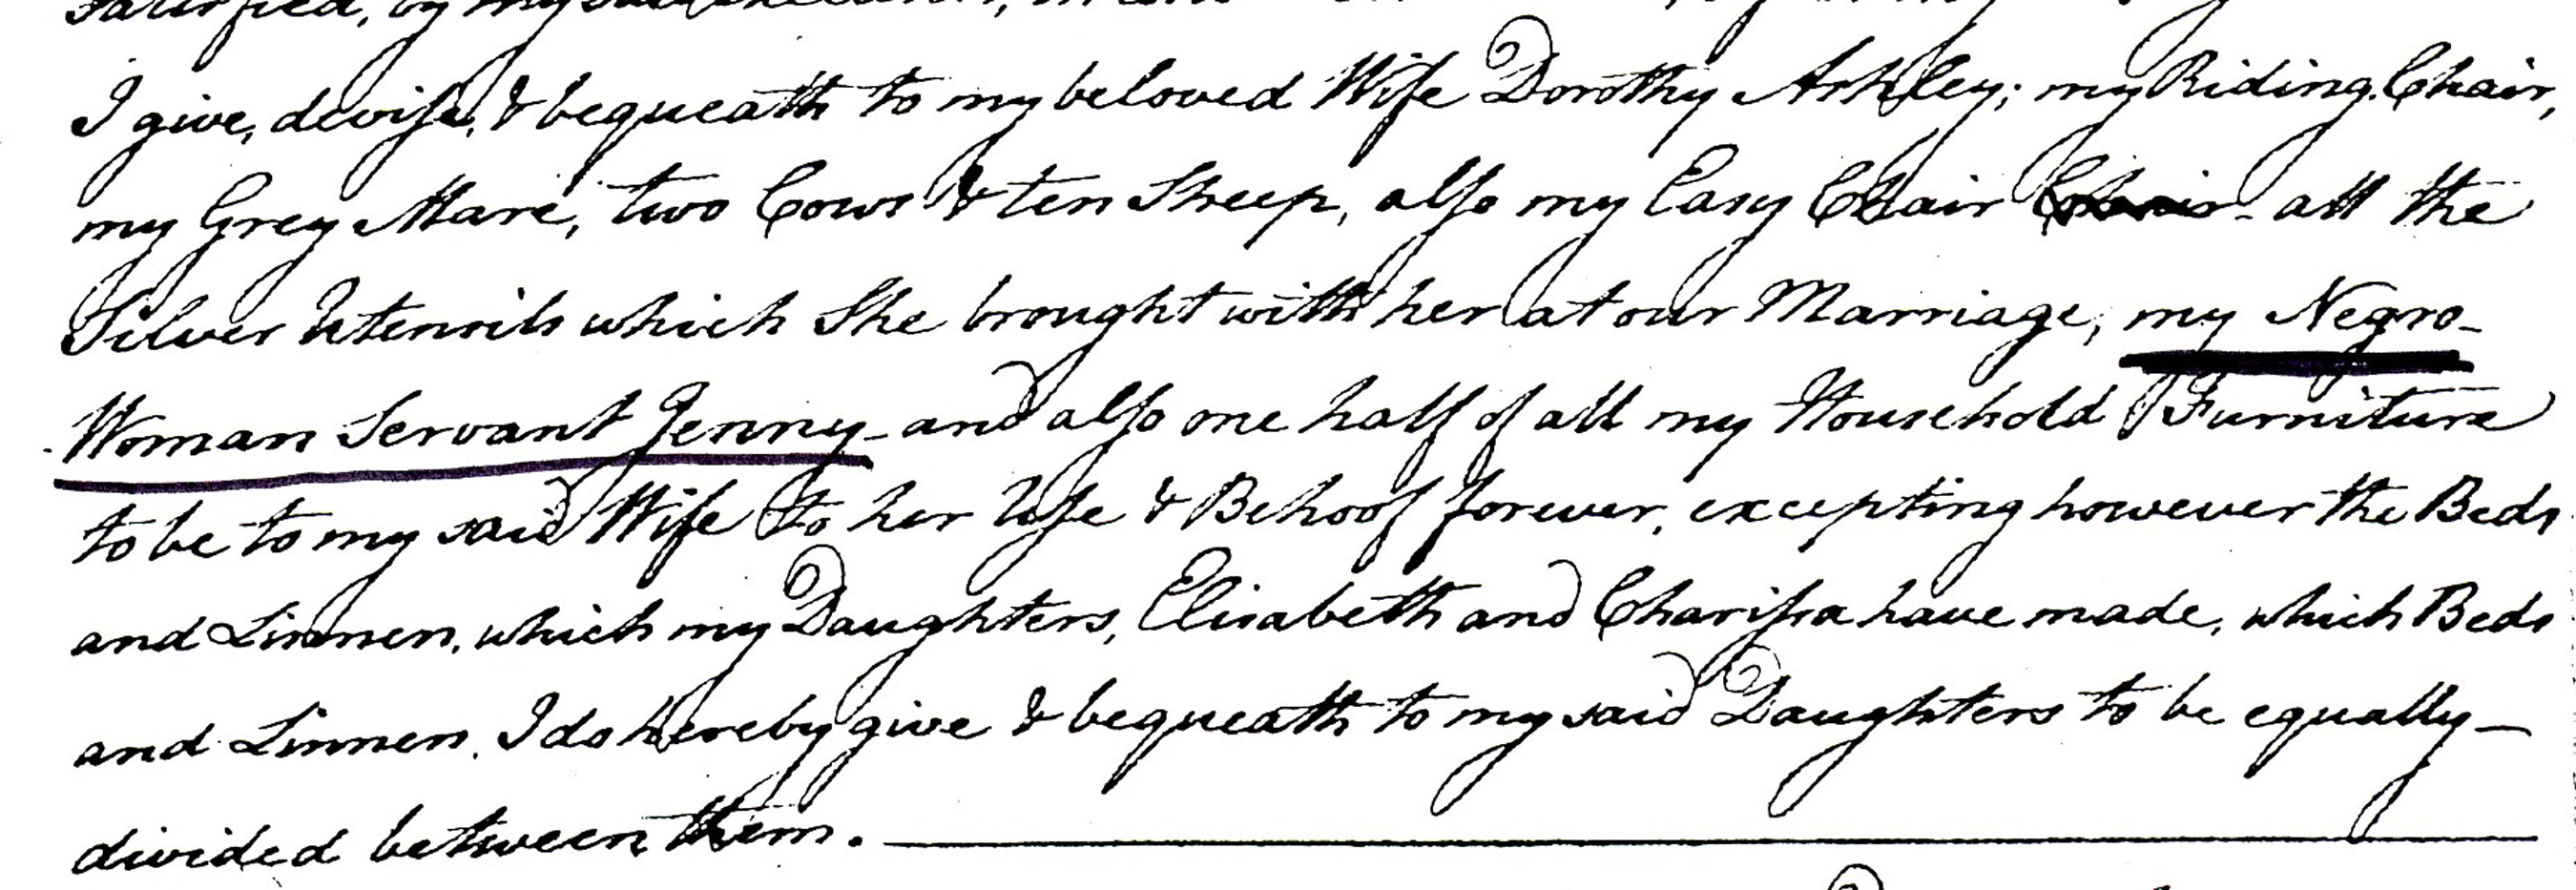 I give, devise, & bequeath to my beloved Wife Dorothy Ashley; my Riding Chair,
my Grey Mare, two Cows & ten Sheep, also my Easy Chair all the
Silver Utensils which She brought with her at our Marriage, my Negro-
Woman Servant Jenny - and also one half of all my Household Furniture
to be to my said Wife to her Use & Behoof forever, excepting however the Beds
and Linnen, which my Daughters, Elisabeth and Charissa have made, which Beds
and Linnen, I do hereby give & bequeath to my said Daughters to be equally -
divided between them.